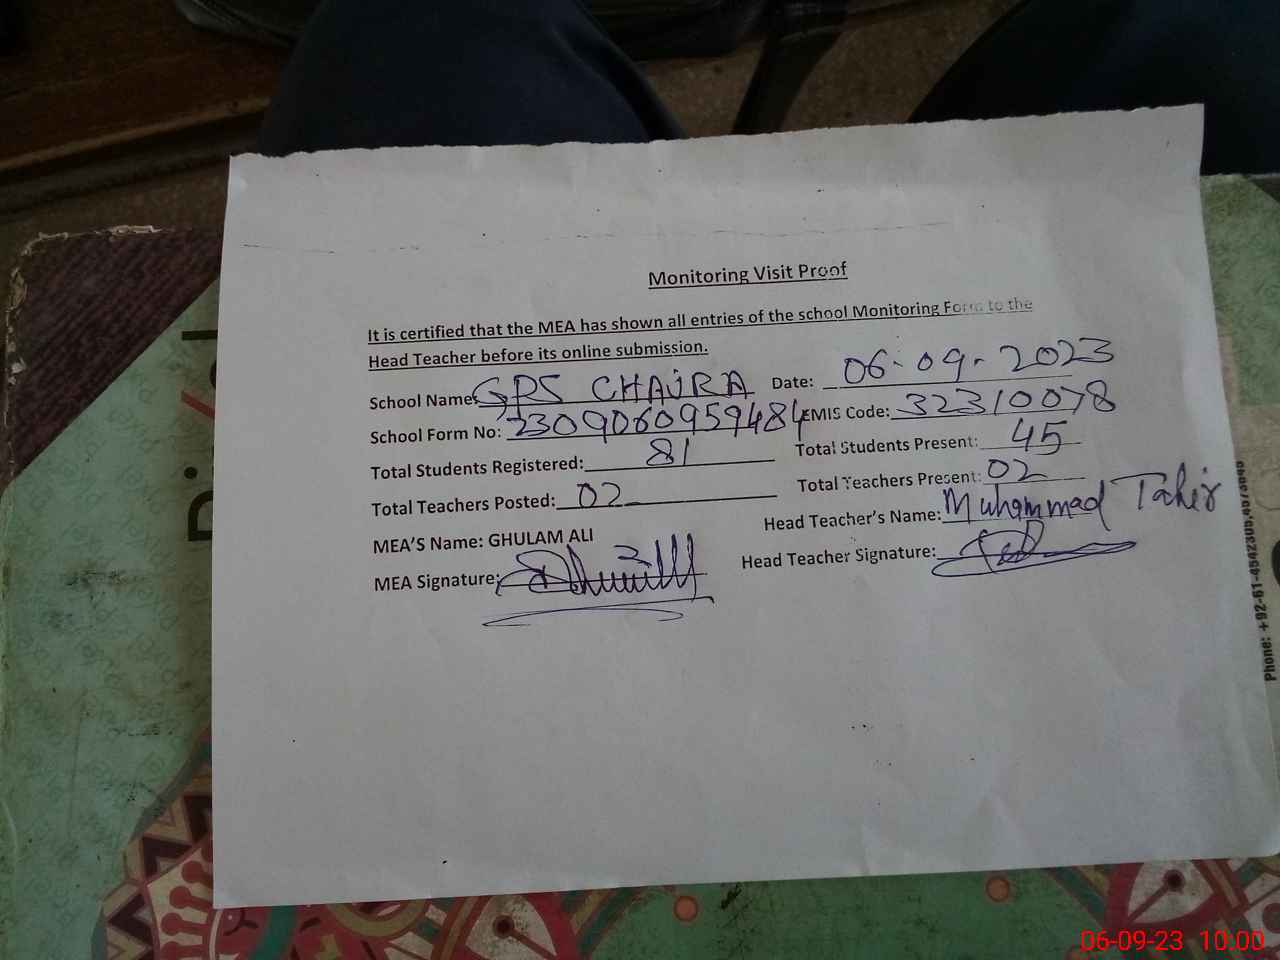 Monitoring Visit Proof
It is certified that the MEA has shown all entries of the school Monitoring Form to the
Head Teacher before its online submission.
School Name: GPS CHAJRA Date: 06-09-2023
School Form No: 2309060959484 EMIS Code: 32310078
Total Students Registered: 81 Total Students Present: 45
Total Teachers Posted: 02 Total Teachers Present: 02
MEA'S Name: GHULAM ALI Head Teacher's Name: Muhammad Tahir
MEA Signature: Head Teacher Signature:
Phone: +92-61-4542305,
06-09-23 10:00